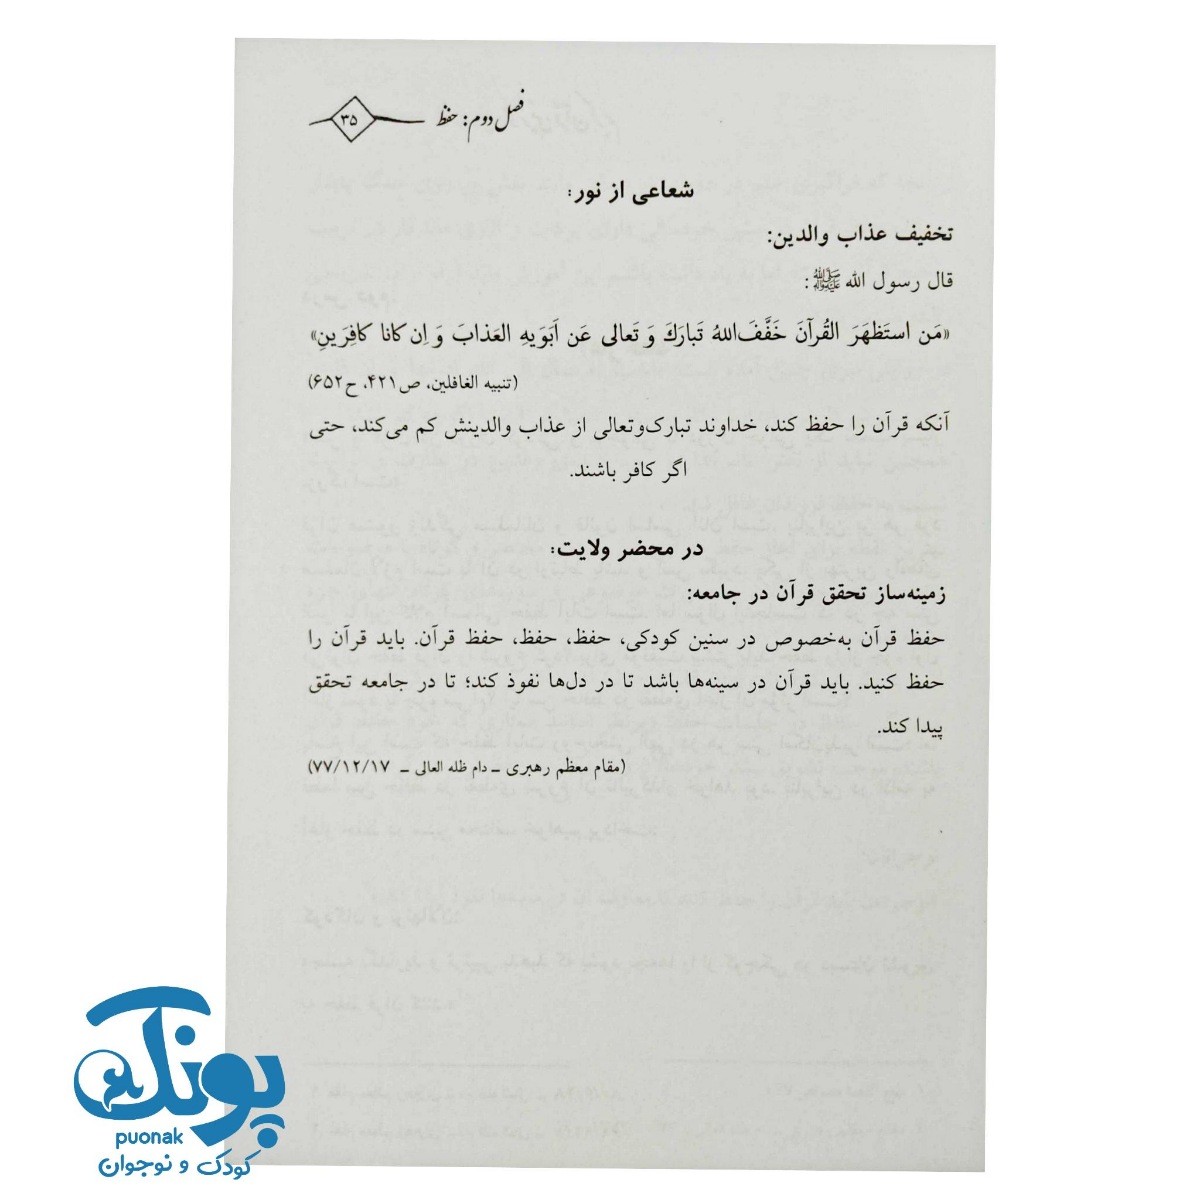 فصل دوم: حفظ ۳۵
شعاعی از نور:
تخفیف عذاب والدین:
قال رسول الله ﷺ:
«مَن استَظهَرَ القُرآنَ خَفَّفَ اللهُ تَبارَكَ وَ تَعالی عَن اَبَوَیهِ العَذابَ وَ اِن کانا کافِرَینِ»
(تنبیه الغافلین، ص۴۲۱، ح۶۵۲)
آنکه قرآن را حفظ کند، خداوند تبارک‌وتعالی از عذاب والدینش کم می‌کند، حتی
اگر کافر باشند.
در محضر ولایت:
زمینه‌ساز تحقق قرآن در جامعه:
حفظ قرآن به‌خصوص در سنین کودکی، حفظ، حفظ، حفظ قرآن. باید قرآن را
حفظ کنید. باید قرآن در سینه‌ها باشد تا در دل‌ها نفوذ کند؛ تا در جامعه تحقق
پیدا کند.
(مقام معظم رهبری ــ دام ظله العالی ــ ۷۷/۱۲/۱۷)
پونک
puonak
کودک و نوجوان